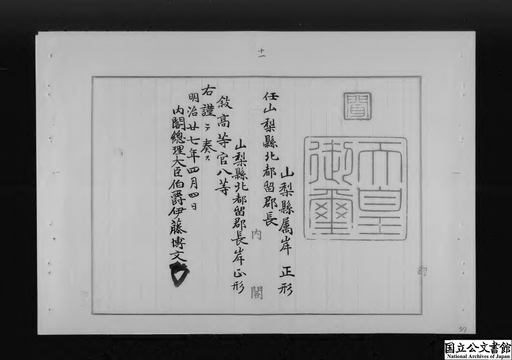 十一
天皇御璽
山梨縣属岸正形
任山梨縣北都留郡長
山梨縣北都留郡長岸正形
敍高等官八等
右謹テ奏ス
明治廿七年四月四日
内閣總理大臣伯爵伊藤博文
内閣
国立公文書館
National Archives of Japan